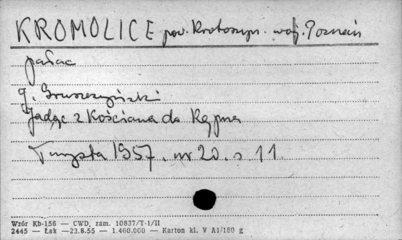 KROMOLICE pow. Krotoszyn. woj. Poznań
pałac
J. Gruszczyński
Jadąc z Kościana do Kępna
Turysta 1957. nr 20. s 11.
Wzór Kb-156 — CWD, zam. 10837/T-1/II
2445 — Łak —23.8.55 — 1.400.000 — Karton kl. V A1/180 g